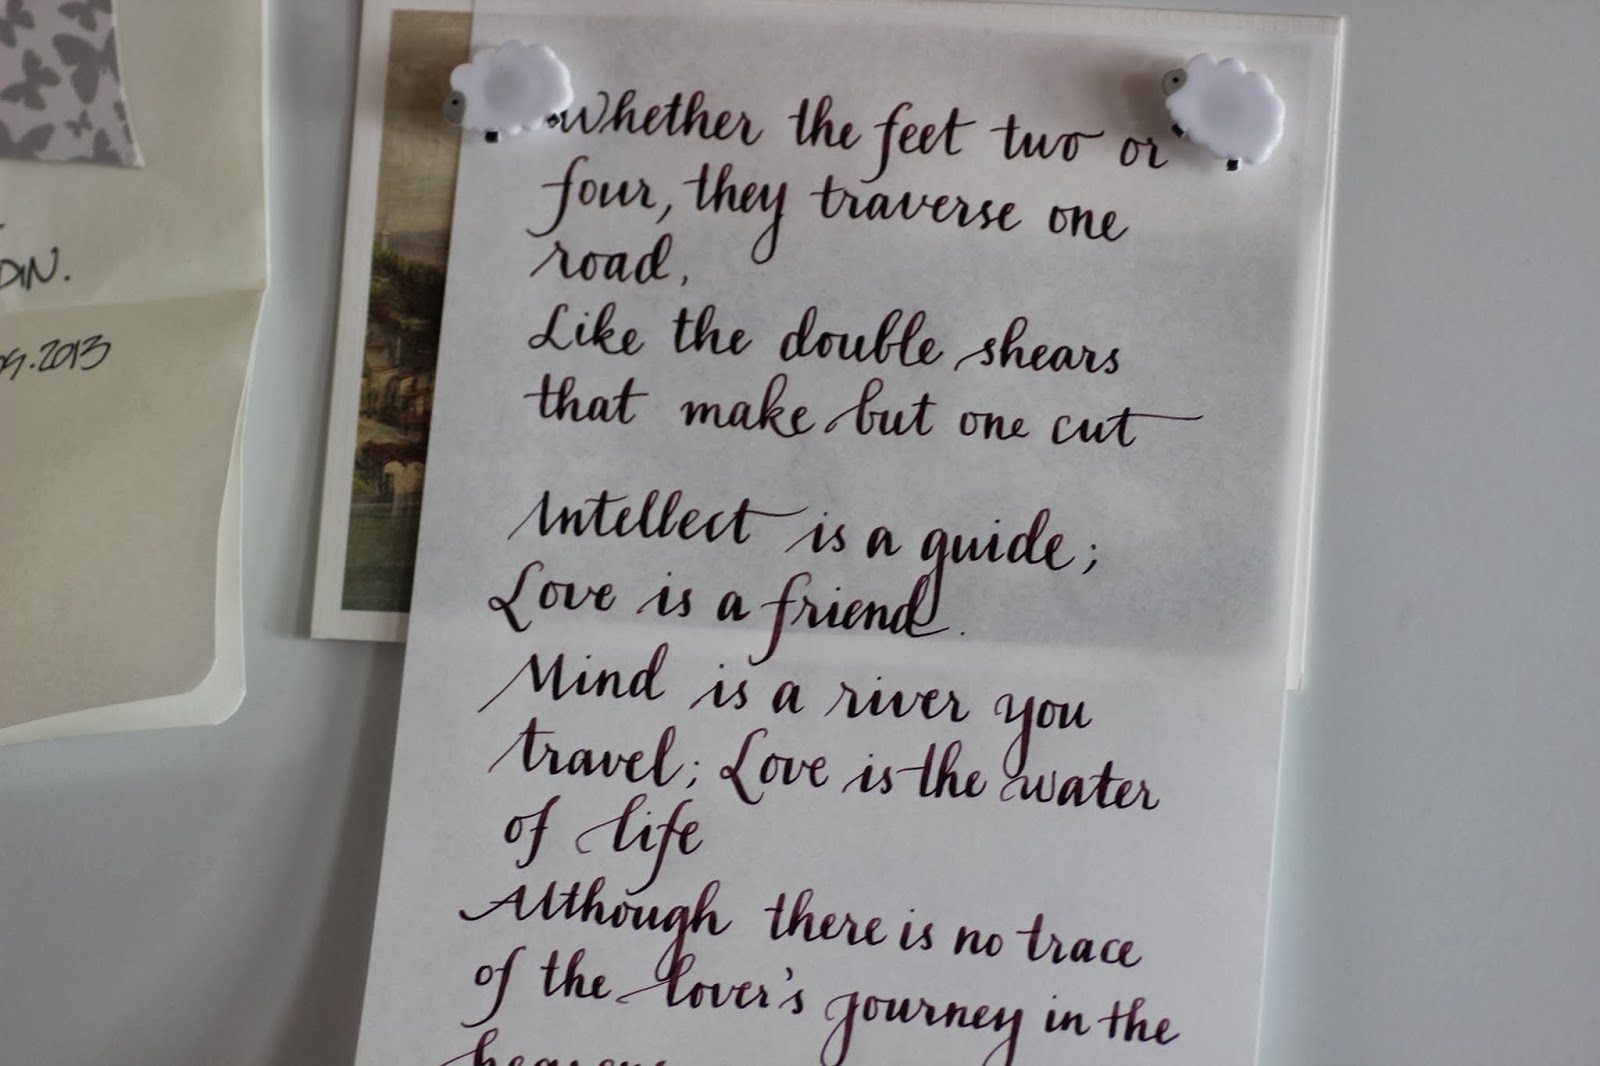 DIN.
09.2013
Whether the feet two or
four, they traverse one
road,
Like the double shears
that make but one cut
Intellect is a guide;
Love is a friend.
Mind is a river you
travel; Love is the water
of life
Although there is no trace
of the lover's journey in the